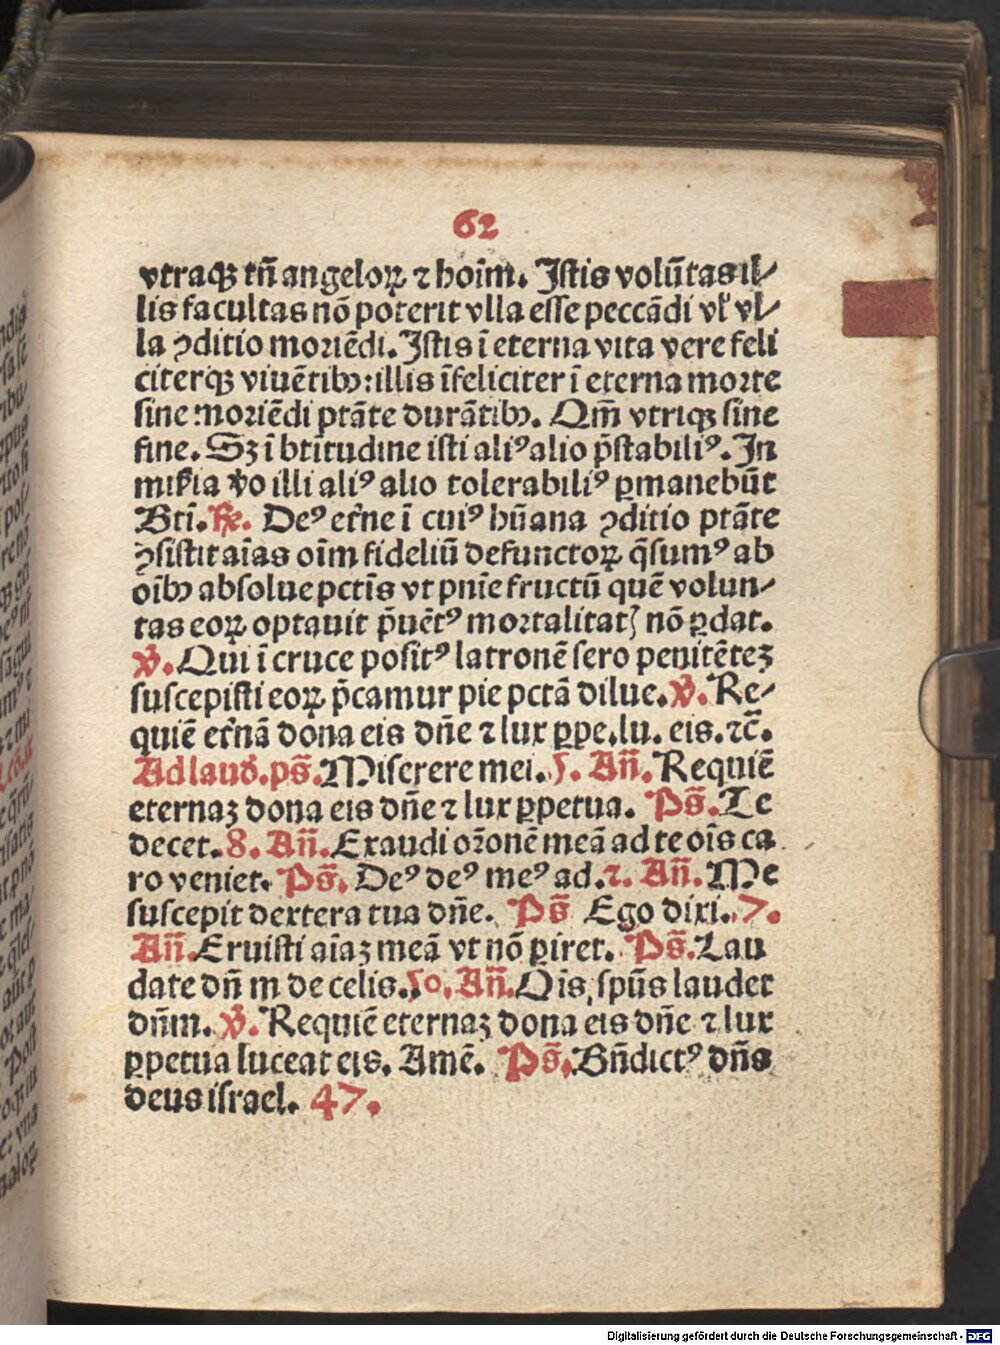 62
vtraqꝫ tn̄ angeloꝝ ⁊ hoīm. Istis volūtas il⸗
lis facultas nō poterit vlla esse peccādi vl' vl⸗
la ꝯditio moriēdi. Istis ī eterna vita vere feli
citerqꝫ viuētibꝫ: illis īfeliciter ī eterna morte
sine moriēdi ptāte durātibꝫ. Qm̄ vtriqꝫ sine
fine. Sꝫ ī btītudine isti aliꝰ alio p̄stabiliꝰ. In
miẜia v̄o illi aliꝰ alio tolerabiliꝰ ꝑmanebūt
Btī. ℞. Deꝰ et̄ne ī cuiꝰ hūana ꝯditio ptāte
ꝯsistit aīas oīm fideliū defunctoꝝ q̄sumꝰ ab
oībꝫ absolue pctīs vt pnīe fructū quē volun⸗
tas eoꝝ optauit p̄uētꝰ mortalitatꝭ nō ꝑdat.
℣. Qui ī cruce positꝰ latronē sero penitēteꝫ
suscepisti eoꝝ p̄camur pie pctā dilue. ℣. Re⸗
quiē et̄nā dona eis dn̄e ⁊ lux ꝑpe. lu. eis. ⁊c̄.
Ad laud. ps̄. Miserere mei. 5. An̄. Requiē
eternaꝫ dona eis dn̄e ⁊ lux ꝑpetua. Ps̄. Te
decet. 8. An̄. Exaudi or̄onē meā ad te oīs ca
ro veniet. Ps̄. Deꝰ deꝰ meꝰ ad. ⁊. An̄. Me
suscepit dextera tua dn̄e. Ps̄ Ego dixi. 7.
An̄. Eruisti aīaꝫ meā vt nō ꝑiret. Ps̄. Lau
date dn̄m de celis. 50. An̄. Oīs spūs laudet
dn̄m. ℣. Requiē eternaꝫ dona eis dn̄e ⁊ lux
ꝑpetua luceat eis. Amē. Ps̄. Bn̄dictꝰ dn̄s
deus israel. 47.
Digitalisierung gefördert durch die Deutsche Forschungsgemeinschaft - DFG